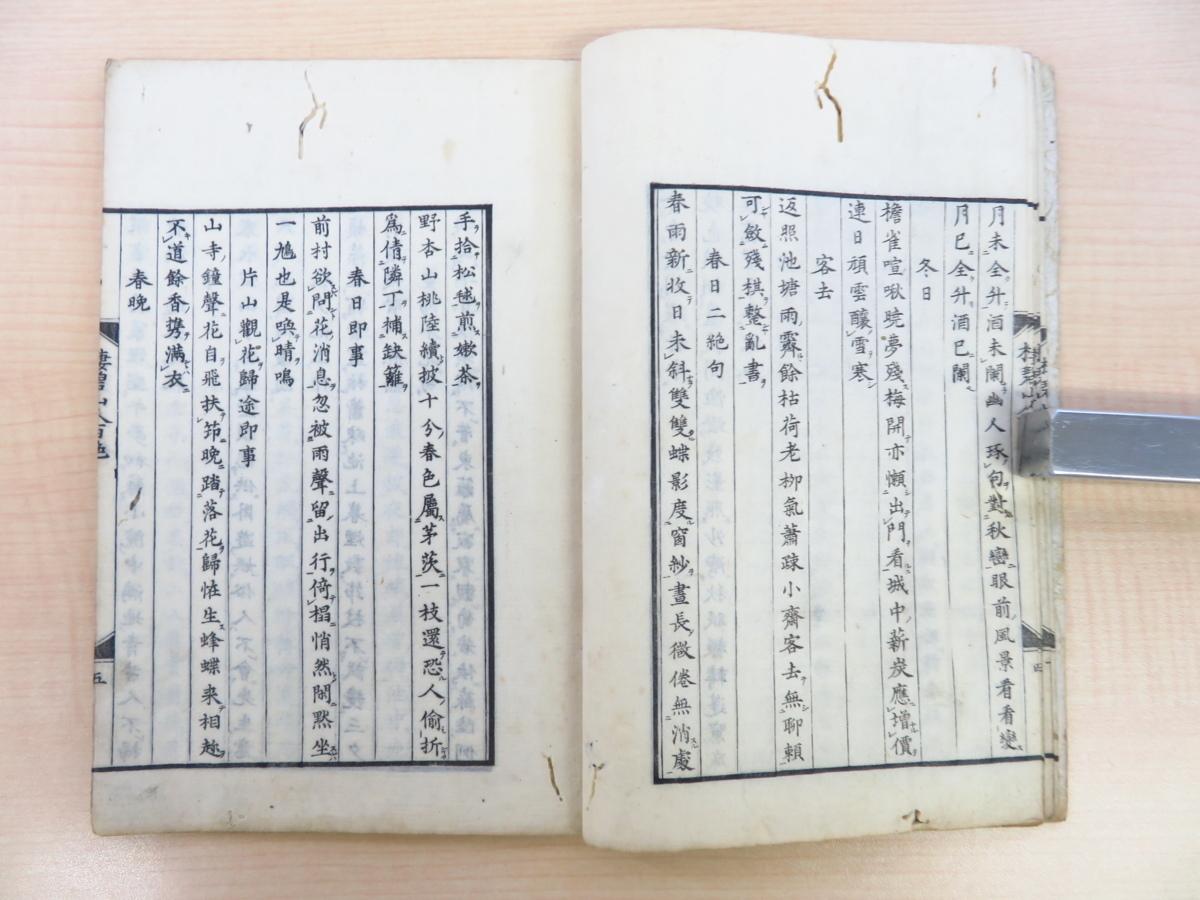 月未全升酒未闌幽人琢句對秋巒眼前風景看看變
月已全升酒已闌
冬日
檐雀喧啾曉夢殘梅開亦懶出門看城中薪炭應增價
連日頑雲釀雪寒
客去
返照池塘雨霽餘枯荷老柳氣蕭疎小齋客去無聊賴
可斂殘棋整亂書
春日二絶句
春雨新收日未斜雙雙蝶影度窗紗晝長微倦無消處
手拾松毬煎嫩茶
野杏山桃陸續披十分春色屬茅茨一枝還恐人偷折
爲倩隣丁補缺籬
春日即事
前村欲問花消息忽被雨聲留出行倚榻悄然閑默坐
一鳩也是喚晴鳴
片山觀花歸途即事
山寺鐘聲花自飛扶筇晩踏落花歸怪生蜂蝶来相趁
不道餘香㩗滿衣
春晩
棲碧山人百絶
五
四